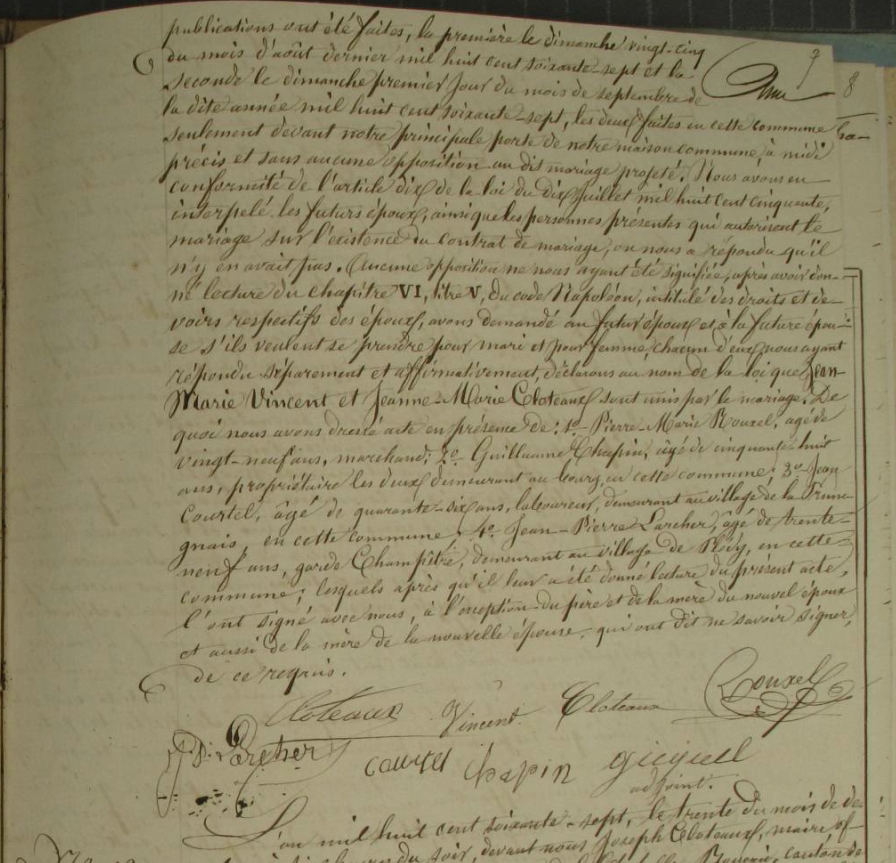 publications ont été faites, la première le dimanche vingt-cinq
du mois d'août dernier mil huit cent soixante-sept et la
seconde le dimanche premier jour du mois de septembre de
8
la dite année mil huit cent soixante-sept, les deux faites en cette commune
seulement devant notre principale porte de notre maison commune, à midi
précis et sans aucune opposition au dit mariage projeté. Nous avons en
conformité de l'article dix de la loi du dix juillet mil huit cent cinquante,
interpelé les futurs époux, ainsi que les personnes présentes qui autorisent le
mariage sur l'existence du contrat de mariage, on nous a répondu qu'il
n'y en avait pas. Aucune opposition ne nous ayant été signifiée, après avoir don-
né lecture du chapitre VI, titre V, du code Napoléon, intitulé des droits et de-
voirs respectifs des époux, avons demandé au futur époux et à la future épou-
se s'ils veulent se prendre pour mari et pour femme, chacun d'eux nous ayant
répondu séparement et affirmativement, déclarons au nom de la loi que Jean-
Marie Vincent et Jeanne-Marie Cloteaux sont unis par le mariage. De
quoi nous avons dressé acte en présence de: 1o Pierre-Marie Rouxel, agé de
vingt-neuf ans, marchand; 2o Guillaume Chapin, âgé de cinquante-huit
ans, propriétaire les deux demeurant au bourg en cette commune; 3o Jean
Courtel, âgé de quarante-six ans, laboureur, demeurant au village de la
gnais, en cette commune; 4o Jean-Pierre Larcher, âgé de trente-
neuf ans, garde Champêtre, demeurant au village de en cette
commune; lesquels après qu'il leur a été donné lecture du présent acte,
l'ont signé avec nous, à l'exception du père et de la mère du nouvel époux
et aussi de la mère de la nouvelle épouse, qui ont dit ne savoir signer,
de ce requis.
Cloteaux Vincent Cloteaux Rouxel
J.P. Larcher Courtel Chapin Gicquel
adjoint.
L'an mil huit cent soixante-sept, le trente du mois de dé-
du soir, devant nous Joseph Cloteaux, maire of-
canton de